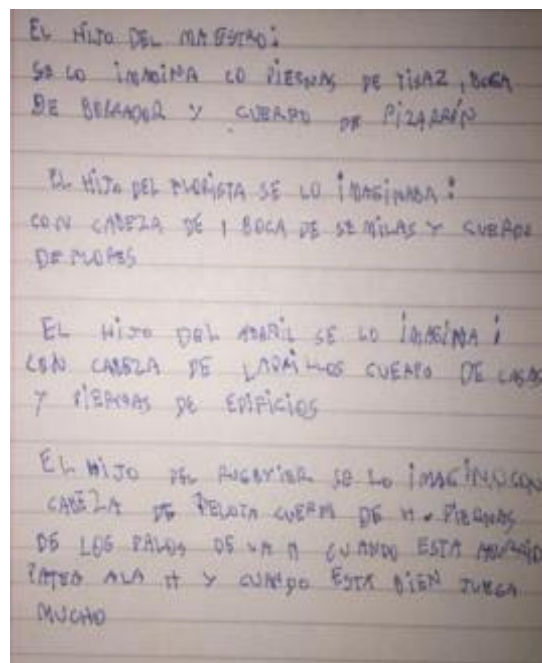 EL HIJO DEL MAESTRO:
SE LO IMAGINA CO PIERNAS DE TIZAZ, BOCA
DE BORRADOR Y CUERPO DE PIZARRÓN
EL HIJO DEL FLORISTA SE LO IMAGINABA:
CON CABEZA DE 1 BOCA DE SEMILAS Y CUERPO
DE FLORES
EL HIJO DEL SE LO IMAGINA:
CON CABEZA DE CUERPO DE CASAS
Y PIERNAS DE EDIFICIOS
EL HIJO DEL SE LO IMAGINA CON
CABEZA DE PELOTA CUERPO DE H . PIERNAS
DE LOS PALOS DE LA H CUANDO ESTA
PATEA ALA H Y CUANDO ESTA BIEN JUEGA
MUCHO